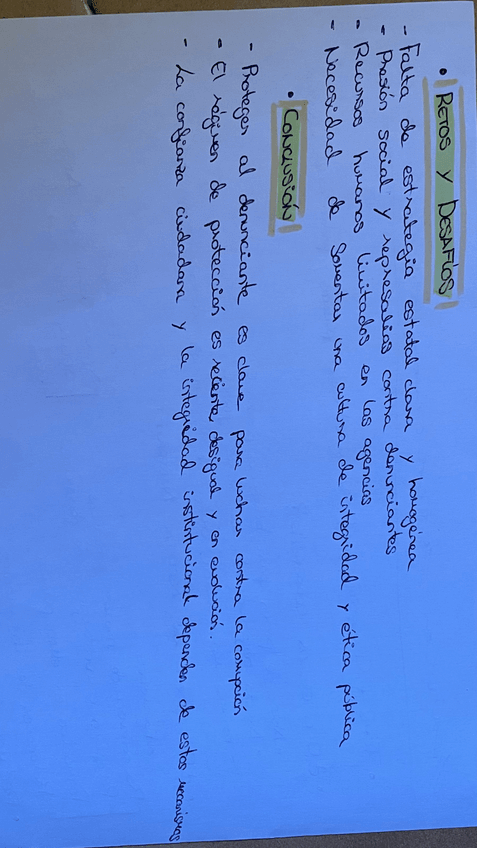 • RETOS Y DESAFÍOS
- Falta de estrategia estatal clara y homogénea
- Presión social y represalias contra denunciantes
- Recursos humanos limitados en las agencias
- Necesidad de fomentar una cultura de integridad y ética pública
• CONCLUSIÓN
- Proteger al denunciante es clave para luchar contra la corrupción
- El régimen de protección es reciente, desigual y en evolución.
- La confianza ciudadana y la integridad institucional dependen de estos mecanismos